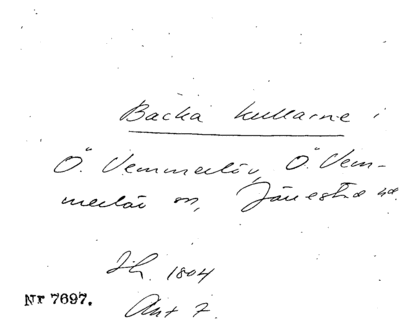 Backa kullarne i
Ö. Vemmerlöv, Ö. Vem-
merlöv sn, Järrestad hd.
Sk. 1804
Akt 7.
Nr 7697.